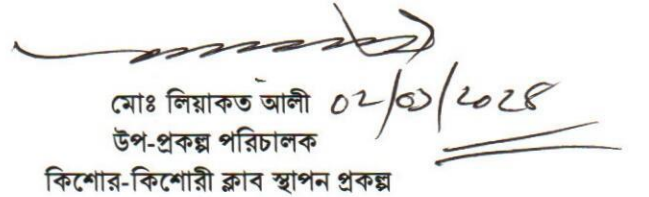 মোঃ লিয়াকত আলী ০২/০১/২০২৪
উপ-প্রকল্প পরিচালক
কিশোর-কিশোরী ক্লাব স্থাপন প্রকল্প